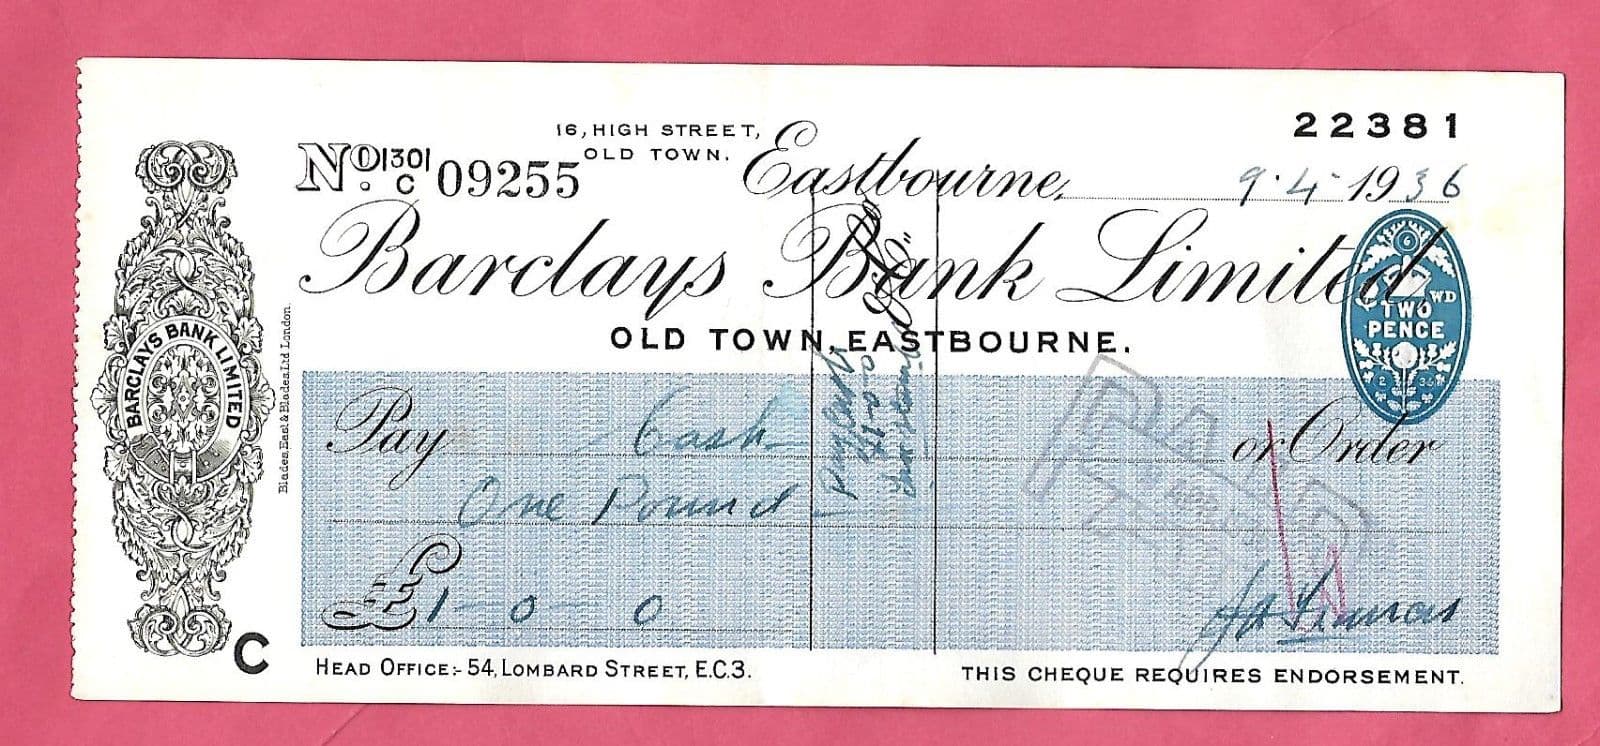 22381
16, HIGH STREET,
OLD TOWN.
Nº 130/C 09255
Eastbourne, 9·4·1936
Barclays Bank Limited
OLD TOWN, EASTBOURNE.
WD
TWO
PENCE
2 36
Pay Cash or Order
One Pound
£1-0-0
BARCLAYS BANK LIMITED
Blades, East & Blades Ltd London.
C
HEAD OFFICE:- 54, LOMBARD STREET, E.C.3.
THIS CHEQUE REQUIRES ENDORSEMENT.